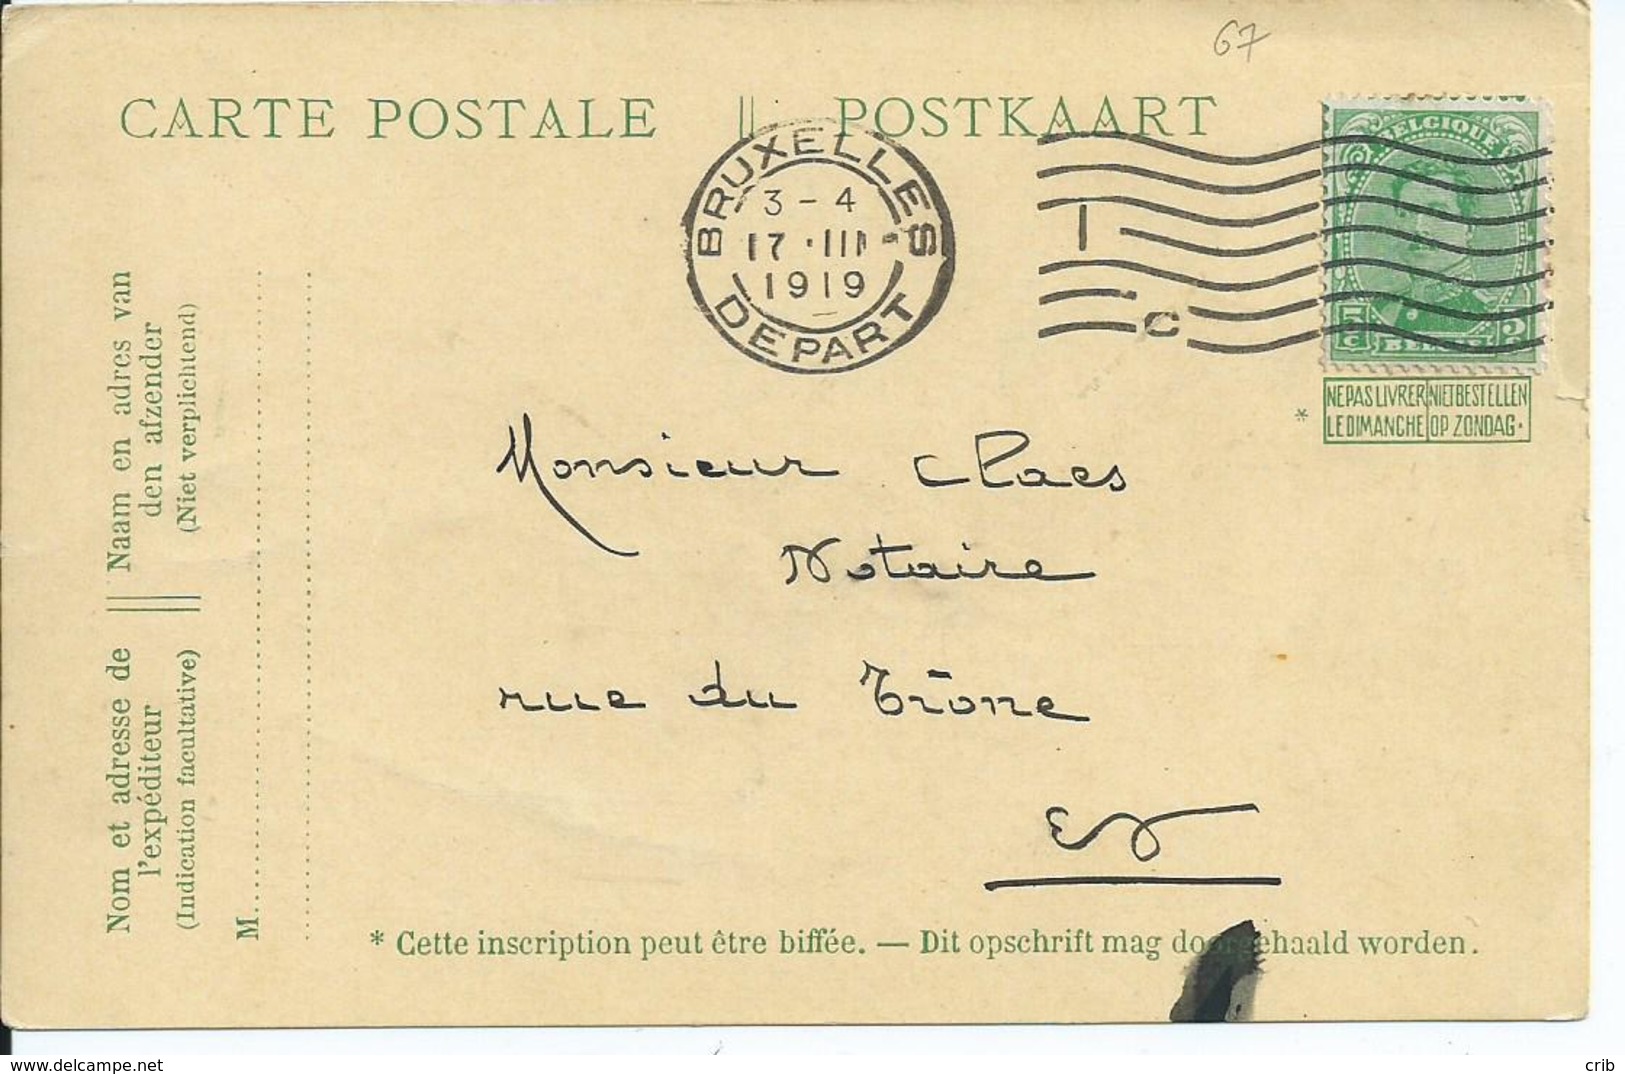 67
CARTE POSTALE || POSTKAART
BRUXELLES
3 - 4
17 · III
1919
DEPART
1
C
BELGIQUE
5 c 5 c
BELGIË
NE PAS LIVRER NIET BESTELLEN
* LE DIMANCHE OP ZONDAG.
Monsieur Claes
Notaire
rue du Trône
* Cette inscription peut être biffée. — Dit opschrift mag doorgehaald worden.
Nom et adresse de || Naam en adres van
l'expéditeur den afzender
(Indication facultative) (Niet verplichtend)
M
crib